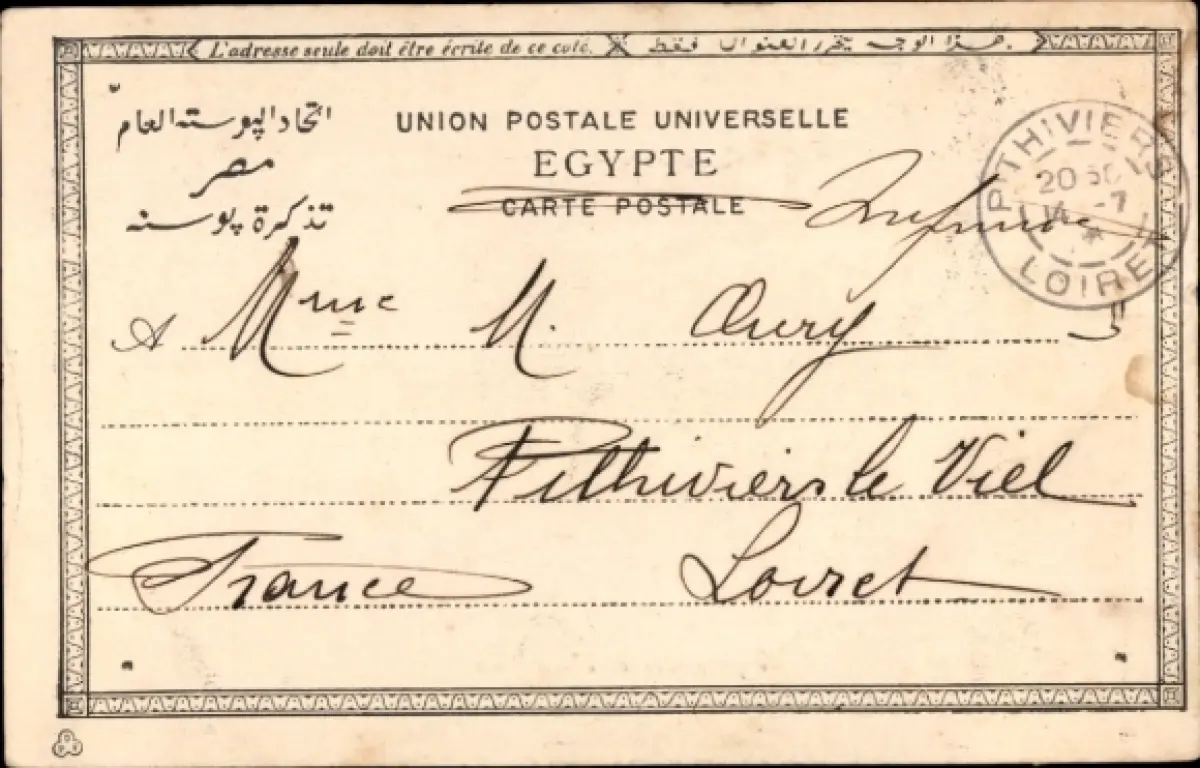 L'adresse seule doit être écrite de ce coté. هذا الوجه يحرر العنوان فقط.
اتحاد البوسته العام
مصر
تذكرة بوسته
UNION POSTALE UNIVERSELLE
EGYPTE
CARTE POSTALE
PITHIVIERS
20
LOIRET
A Mme M. Oury
Pithiviers le Viel
France Loiret